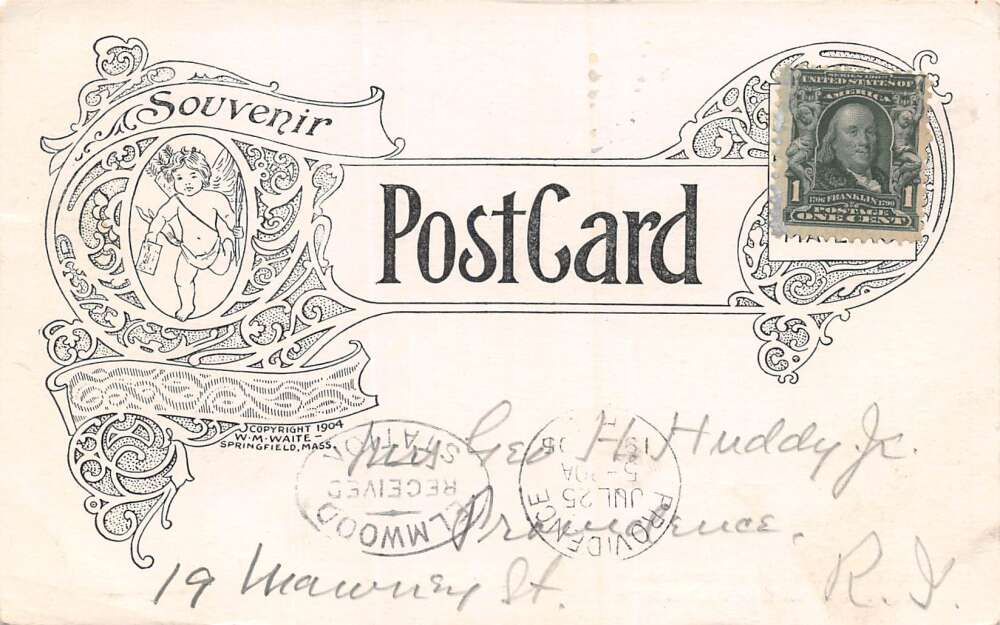 Souvenir
PostCard
SERIES 1902
UNITED STATES OF
AMERICA
1 1706 FRANKLIN 1790 1
POSTAGE
ONE CENT
COPYRIGHT 1904
W. M. WAITE -
SPRINGFIELD, MASS.
Geo H. Huddy Jr.
Providence.
19 Mawney St. R. I.
ELMWOOD
RECEIVED
PROVIDENCE
JUL 25